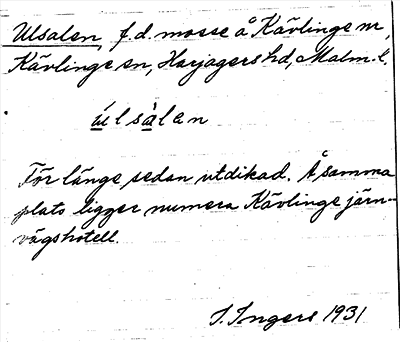 Ulsalen, f.d. mosse å Kävlinge nr,
Kävlinge sn, Harjagers hd, Malm. l.
úlsàlen
För länge sedan utdikad. Å samma
plats ligger numera Kävlinge järn-
vägshotell.
I. Ingers 1931